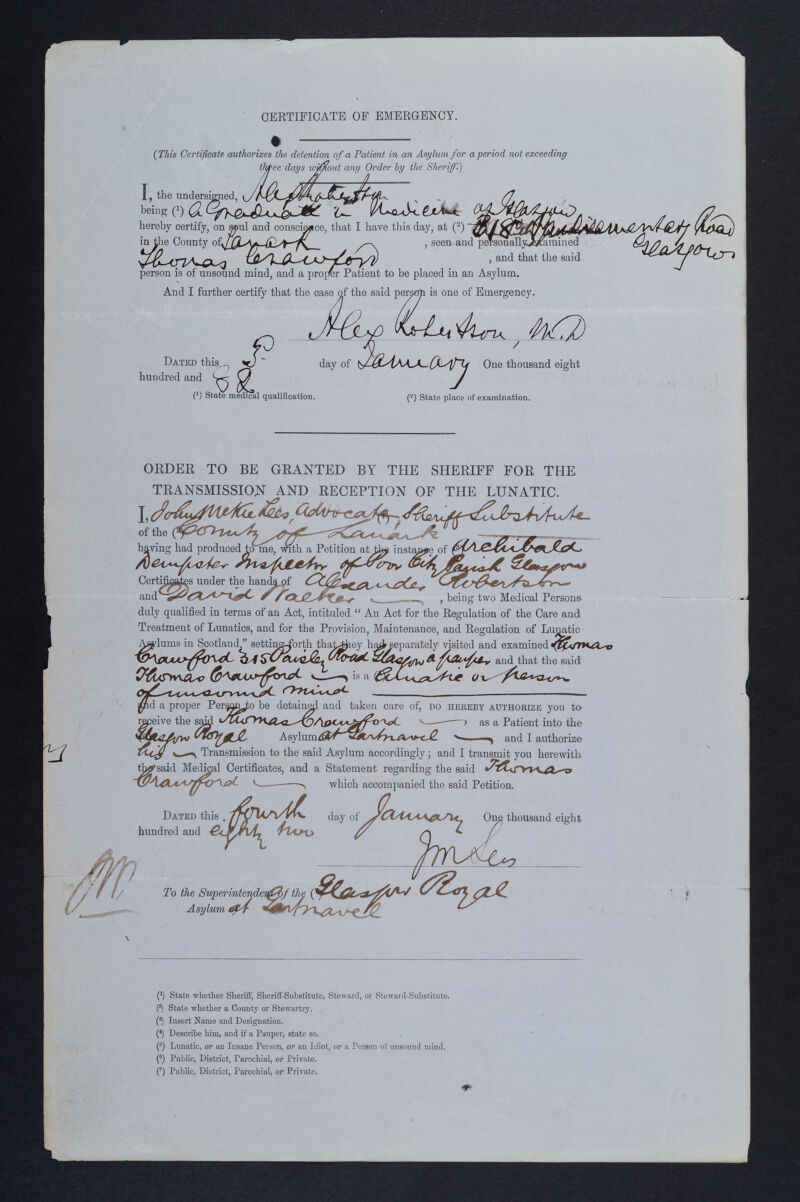 CERTIFICATE OF EMERGENCY.
(This Certificate authorizes the detention of a Patient in an Asylum for a period not exceeding
three days without any Order by the Sheriff.)
I, the undersigned, Alex Robertson
being (1) a Graduate in Medicine of Glasgow
hereby certify, on soul and conscience, that I have this day, at (2) Parliamentary Road
in the County of Lanark , seen and personally examined Glasgow
Thomas Crawford , and that the said
person is of unsound mind, and a proper Patient to be placed in an Asylum.
And I further certify that the case of the said person is one of Emergency.
Alex Robertson, M.D
DATED this 3d day of January One thousand eight
hundred and 82
(1) State medical qualification. (2) State place of examination.
ORDER TO BE GRANTED BY THE SHERIFF FOR THE
TRANSMISSION AND RECEPTION OF THE LUNATIC.
I, John McKie Lees, Advocate, (1) Sheriff Substitute
of the (2) County of Lanark
having had produced to me, with a Petition at the instance of Archibald
Dempster Inspector of Poor City Parish Glasgow
Certificates under the hands of Alexander Robertson
and David Walker , being two Medical Persons
duly qualified in terms of an Act, intituled “ An Act for the Regulation of the Care and
Treatment of Lunatics, and for the Provision, Maintenance, and Regulation of Lunatic
Asylums in Scotland,” setting forth that they had separately visited and examined Thomas
Crawford 315 Paisley Road Glasgow a pauper and that the said
Thomas Crawford is a Lunatic or person
of unsound mind
and a proper Person to be detained and taken care of, DO HEREBY AUTHORIZE you to
receive the said Thomas Crawford as a Patient into the
Glasgow Royal Asylum at Gartnavel and I authorize
his Transmission to the said Asylum accordingly; and I transmit you herewith
the said Medical Certificates, and a Statement regarding the said Thomas
Crawford which accompanied the said Petition.
DATED this fourth day of January One thousand eight
hundred and eighty two
J M Lees
To the Superintendent of the Glasgow Royal
Asylum at Gartnavel
(1) State whether Sheriff, Sheriff-Substitute, Steward, or Steward-Substitute.
(2) State whether a County or Stewartry.
(3) Insert Name and Designation.
(4) Describe him, and if a Pauper, state so.
(5) Lunatic, or an Insane Person, or an Idiot, or a Person of unsound mind.
(6) Public, District, Parochial, or Private.
(7) Public, District, Parochial, or Private.